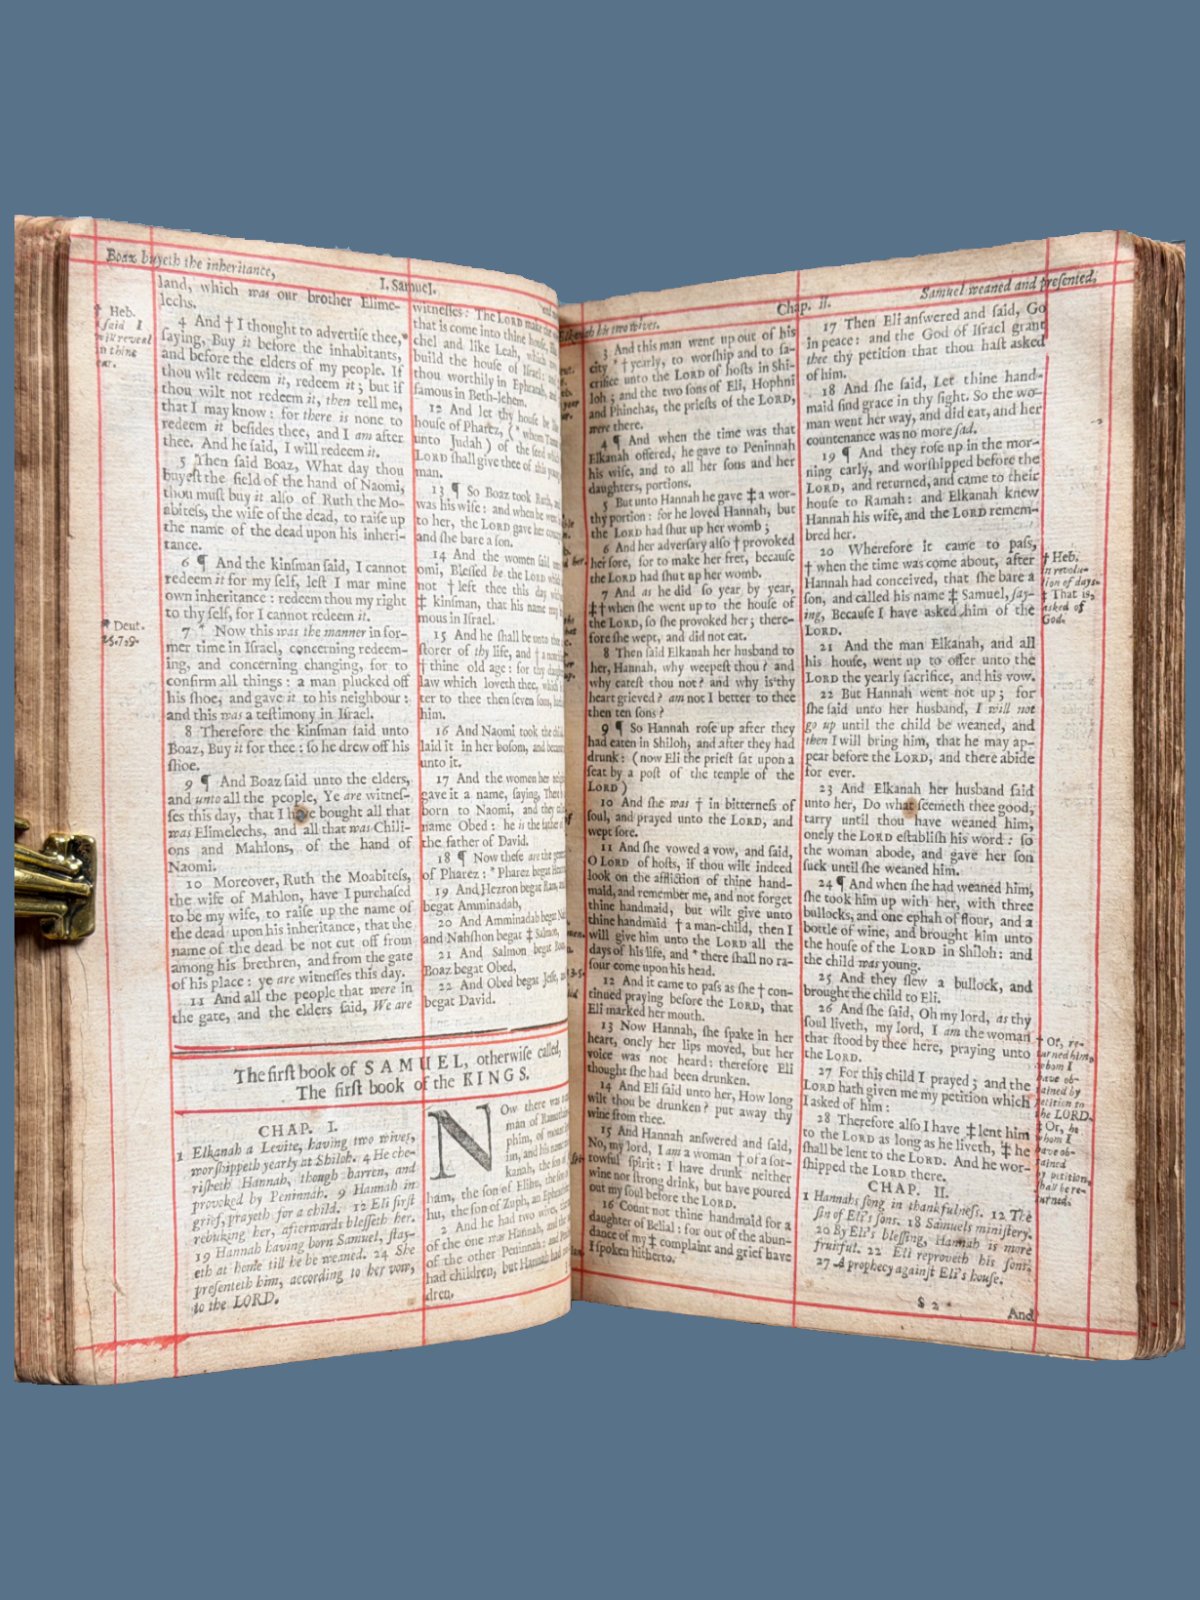 Boaz buyeth the inheritance,
I. Samuel.
† Heb.
ſaid I
will reveal
in thine
ear.
* Deut.
25.7,9.
land, which was our brother Elime-
lechs.
4 And † I thought to advertiſe thee,
ſaying, Buy it before the inhabitants,
and before the elders of my people. If
thou wilt redeem it, redeem it; but if
thou wilt not redeem it, then tell me,
that I may know: for there is none to
redeem it beſides thee, and I am after
thee. And he ſaid, I will redeem it.
5 Then ſaid Boaz, What day thou
buyeſt the field of the hand of Naomi,
thou muſt buy it alſo of Ruth the Mo-
abiteſs, the wife of the dead, to raiſe up
the name of the dead upon his inheri-
tance.
6 ¶ And the kinſman ſaid, I cannot
redeem it for my ſelf, leſt I mar mine
own inheritance: redeem thou my right
to thy ſelf, for I cannot redeem it.
7 * Now this was the manner in for-
mer time in Iſrael, concerning redeem-
ing, and concerning changing, for to
confirm all things: a man plucked off
his ſhoe, and gave it to his neighbour:
and this was a teſtimony in Iſrael.
8 Therefore the kinſman ſaid unto
Boaz, Buy it for thee: ſo he drew off his
ſhoe.
9 ¶ And Boaz ſaid unto the elders,
and unto all the people, Ye are witneſ-
ſes this day, that I have bought all that
was Elimelechs, and all that was Chili-
ons and Mahlons, of the hand of
Naomi.
10 Moreover, Ruth the Moabiteſs,
the wife of Mahlon, have I purchaſed
to be my wife, to raiſe up the name of
the dead upon his inheritance, that the
name of the dead be not cut off from
among his brethren, and from the gate
of his place: ye are witneſſes this day.
11 And all the people that were in
the gate, and the elders ſaid, We are
witneſſes: The LORD make the
that is come into thine houſe,
chel and like Leah, which
build the houſe of Iſrael:
thou worthily in Ephratah, and
famous in Beth-lehem.
12 And let thy houſe be like
houſe of Pharez, (* whom
unto Judah) of the ſeed which
LORD ſhall give thee of this young
man.
13 ¶ So Boaz took Ruth,
was his wife: and when he went
to her, the LORD gave her
and ſhe bare a ſon.
14 And the women ſaid
omi, Bleſſed be the LORD which
not † left thee this day
‡ kinſman, that his name may
mous in Iſrael.
15 And he ſhall be unto thee
ſtorer of thy life, and † a
‡ thine old age: for thy
law which loveth thee, which
ter to thee then ſeven ſons,
him.
16 And Naomi took the child
laid it in her boſom, and
unto it.
17 And the women her
gave it a name, ſaying, There
born to Naomi, and they
name Obed: he is the father of
the father of David.
18 ¶ Now theſe are the
of Pharez: * Pharez begat
19 And Hezron begat Ram,
begat Amminadab,
20 And Amminadab begat
and Nahſhon begat ‡ Salmon,
21 And Salmon begat
Boaz begat Obed,
22 And Obed begat Jeſſe,
begat David.
The firſt book of SAMUEL, otherwiſe called,
The firſt book of the KINGS.
CHAP. I.
1 Elkanah a Levite, having two wives,
worſhippeth yearly at Shiloh. 4 He che-
riſheth Hannah, though barren, and
provoked by Peninnah. 9 Hannah in
grief, prayeth for a child. 12 Eli firſt
rebuking her, afterwards bleſſeth her.
19 Hannah having born Samuel, ſtay-
eth at home till he be weaned. 24 She
preſenteth him, according to her vow,
to the LORD.
NOw there was
man of
phim, of mount
im, and his name
kanah, the ſon of
ham, the ſon of Elihu, the ſon
hu, the ſon of Zuph, an
2 And he had two wives,
of the one was Hannah, and the
of the other Peninnah: and
had children, but Hannah had
dren.
Elkanah his two wives.
Chap. II.
Samuel weaned and preſented,
3 And this man went up out of his
city * † yearly, to worſhip and to ſa-
crifice unto the LORD of hoſts in Shi-
loh; and the two ſons of Eli, Hophni
and Phinehas, the prieſts of the LORD,
were there.
4 ¶ And when the time was that
Elkanah offered, he gave to Peninnah
his wife, and to all her ſons and her
daughters, portions.
5 But unto Hannah he gave ‡ a wor-
thy portion: for he loved Hannah, but
the LORD had ſhut up her womb;
6 And her adverſary alſo † provoked
her ſore, for to make her fret, becauſe
the LORD had ſhut up her womb.
7 And as he did ſo year by year,
‡† when ſhe went up to the houſe of
the LORD, ſo ſhe provoked her; there-
fore ſhe wept, and did not eat.
8 Then ſaid Elkanah her husband to
her, Hannah, why weepeſt thou? and
why eateſt thou not? and why is thy
heart grieved? am not I better to thee
then ten ſons?
9 ¶ So Hannah roſe up after they
had eaten in Shiloh, and after they had
drunk: (now Eli the prieſt ſat upon a
ſeat by a poſt of the temple of the
LORD)
10 And ſhe was † in bitterneſs of
ſoul, and prayed unto the LORD, and
wept ſore.
11 And ſhe vowed a vow, and ſaid,
O LORD of hoſts, if thou wilt indeed
look on the affliction of thine hand-
maid, and remember me, and not forget
thine handmaid, but wilt give unto
thine handmaid † a man-child, then I
will give him unto the LORD all the
days of his life, and * there ſhall no ra-
ſour come upon his head.
12 And it came to paſs as ſhe † con-
tinued praying before the LORD, that
Eli marked her mouth.
13 Now Hannah, ſhe ſpake in her
heart, onely her lips moved, but her
voice was not heard: therefore Eli
thought ſhe had been drunken.
14 And Eli ſaid unto her, How long
wilt thou be drunken? put away thy
wine from thee.
15 And Hannah anſwered and ſaid,
No, my lord, I am a woman † of a ſor-
rowful ſpirit: I have drunk neither
wine nor ſtrong drink, but have poured
out my ſoul before the LORD.
16 Count not thine handmaid for a
daughter of Belial: for out of the abun-
dance of my ‡ complaint and grief have
I ſpoken hitherto.
17 Then Eli anſwered and ſaid, Go
in peace: and the God of Iſrael grant
thee thy petition that thou haſt asked
of him.
18 And ſhe ſaid, Let thine hand-
maid find grace in thy ſight. So the wo-
man went her way, and did eat, and her
countenance was no more ſad.
19 ¶ And they roſe up in the mor-
ning early, and worſhipped before the
LORD, and returned, and came to their
houſe to Ramah: and Elkanah knew
Hannah his wife, and the LORD remem-
bred her.
20 Wherefore it came to paſs,
† when the time was come about, after
Hannah had conceived, that ſhe bare a
ſon, and called his name ‡ Samuel, ſay-
ing, Becauſe I have asked him of the
LORD.
21 And the man Elkanah, and all
his houſe, went up to offer unto the
LORD the yearly ſacrifice, and his vow.
22 But Hannah went not up; for
ſhe ſaid unto her husband, I will not
go up until the child be weaned, and
then I will bring him, that he may ap-
pear before the LORD, and there abide
for ever.
23 And Elkanah her husband ſaid
unto her, Do what ſeemeth thee good,
tarry until thou have weaned him,
onely the LORD eſtabliſh his word: ſo
the woman abode, and gave her ſon
ſuck until ſhe weaned him.
24 ¶ And when ſhe had weaned him,
ſhe took him up with her, with three
bullocks, and one ephah of flour, and a
bottle of wine, and brought him unto
the houſe of the LORD in Shiloh: and
the child was young.
25 And they ſlew a bullock, and
brought the child to Eli.
26 And ſhe ſaid, Oh my lord, as thy
ſoul liveth, my lord, I am the woman
that ſtood by thee here, praying unto
the LORD.
27 For this child I prayed; and the
LORD hath given me my petition which
I asked of him:
28 Therefore alſo I have ‡ lent him
to the LORD as long as he liveth, ‡ he
ſhall be lent to the LORD. And he wor-
ſhipped the LORD there.
CHAP. II.
1 Hannahs ſong in thankfulneſs. 12 The
ſin of Eli's ſons. 18 Samuels miniſtery.
20 By Eli's bleſſing, Hannah is more
fruitful. 22 Eli reproveth his ſons.
27 A prophecy againſt Eli's houſe.
S 2
And
† Heb.
in revolu-
tion of days.
‡ That is,
asked of
God.
‡ Or, re-
turned him,
whom I
have ob-
tained by
petition to
the LORD.
‡ Or, he
whom I
have ob-
tained
by petition,
ſhall be re-
turned.